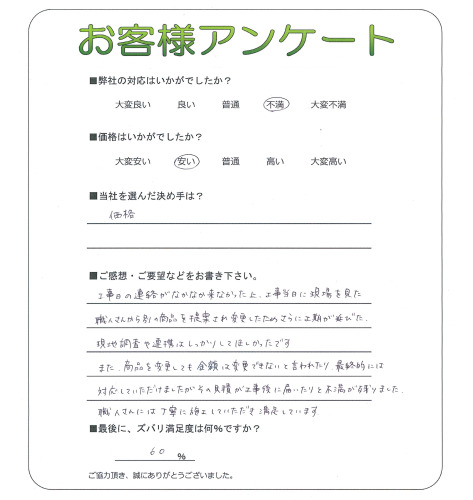 お客様アンケート
■弊社の対応はいかがでしたか？
大変良い 良い 普通 不満 大変不満
■価格はいかがでしたか？
大変安い 安い 普通 高い 大変高い
■当社を選んだ決め手は？
価格
■ご感想・ご要望などをお書き下さい。
工事日の連絡がなかなか来なかった上、工事当日に現場を見た
職人さんから別の商品を提案され変更したためさらに工期が延びた。
現地調査や連携はしっかりしてほしかったです
また、商品を変更しても金額は変更できないと言われたり、最終的には
対応していただけましたがその見積が工事後に届いたりと不満が残りました。
職人さんには丁寧に施工していただき満足しています
■最後に、ズバリ満足度は何％ですか？
60 ％
ご協力頂き、誠にありがとうございました。